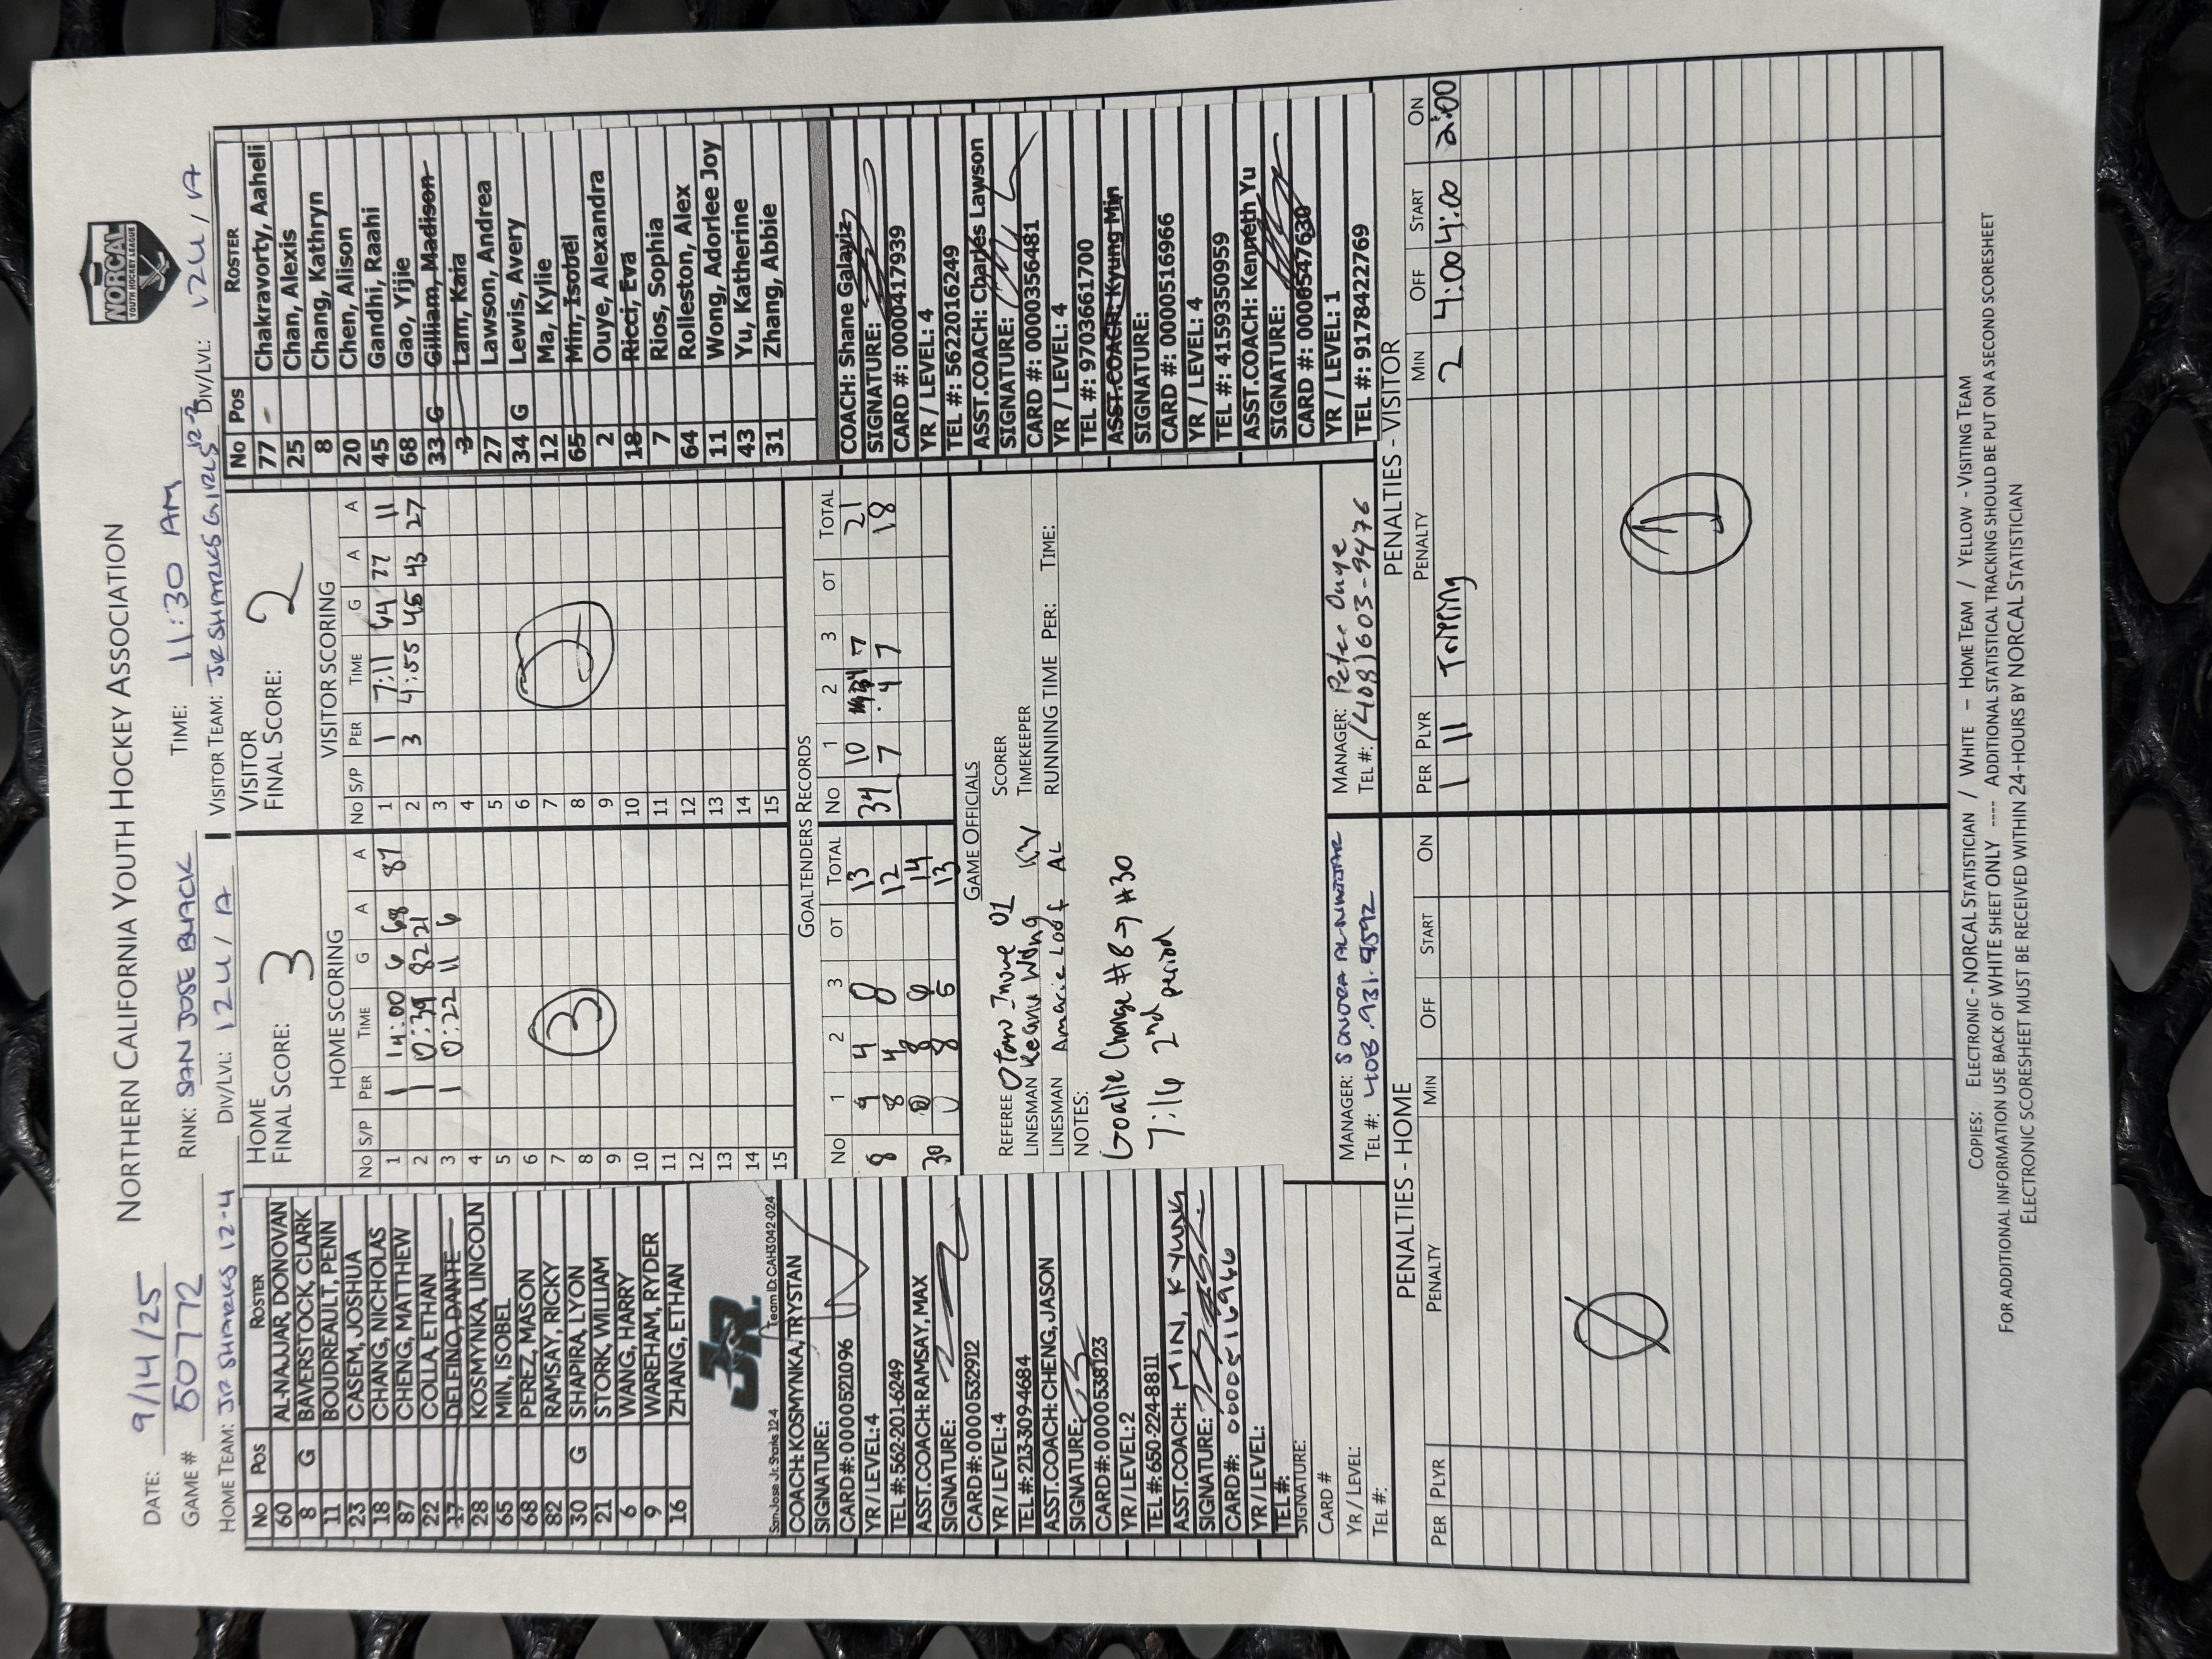 NORCAL
YOUTH HOCKEY LEAGUE
NORTHERN CALIFORNIA YOUTH HOCKEY ASSOCIATION
DATE: 9/14/25
GAME # 50772 RINK: SAN JOSE BLACK TIME: 11:30 AM
HOME TEAM: JR SHARKS 12-4 DIV/LVL: 12U / A VISITOR TEAM: JR SHARKS GIRLS 12-2 DIV/LVL: 12U / A
HOME
FINAL SCORE: 3
VISITOR
FINAL SCORE: 2
NO POS ROSTER
60 AL-NAJJAR, DONOVAN
8 G BAVERSTOCK, CLARK
11 BOUDREAULT, PENN
23 CASEM, JOSHUA
18 CHANG, NICHOLAS
87 CHENG, MATTHEW
22 COLLA, ETHAN
17 DELFINO, DANTE
28 KOSMYNKA, LINCOLN
65 MIN, ISOBEL
68 PEREZ, MASON
82 RAMSAY, RICKY
30 G SHAPIRA, LYON
21 STORK, WILLIAM
6 WANG, HARRY
9 WAREHAM, RYDER
16 ZHANG, ETHAN
JR
San Jose Jr. Sharks 12-4 Team ID: CAH3042-024
COACH: KOSMYNKA, TRYSTAN
SIGNATURE:
CARD#: 00000521096
YR / LEVEL: 4
TEL #: 562-201-6249
ASST.COACH: RAMSAY, MAX
SIGNATURE:
CARD#: 00000532912
YR / LEVEL: 4
TEL #: 213-309-4684
ASST.COACH: CHENG, JASON
SIGNATURE:
CARD#: 00000538123
YR / LEVEL: 2
TEL #: 650-224-8811
ASST.COACH: MIN, KYUNG
SIGNATURE:
CARD#: 0000516966
YR / LEVEL:
TEL #:
SIGNATURE:
CARD #
YR / LEVEL:
TEL #:
HOME SCORING
NO S/P PER TIME G A A
1 1 14:00 6 68 87
2 1 10:39 82 21
3 1 0:22 11 6
4
5
6
7
8
9
10
11
12
13
14
15
3
VISITOR SCORING
NO S/P PER TIME G A A
1 1 7:11 77 11
2 3 4:55 45 43 27
3
4
5
6
7
8
9
10
11
12
13
14
15
2
GOALTENDERS RECORDS
NO 1 2 3 OT TOTAL NO 1 2 3 OT TOTAL
8 9 4 0 13 34 10 7 21
8 4 0 12 7 4 7 18
30 0 8 6 14
0 8 5 13
GAME OFFICIALS
REFEREE SCORER
LINESMAN Keanu Wong KW TIMEKEEPER
LINESMAN Amarie Loof AL RUNNING TIME PER: TIME:
NOTES:
Goalie Change #8 → #30
7:16 2nd period
MANAGER: SONORA AL-NAJJAR
TEL #: 408.931.9592
MANAGER: Peter Ouye
TEL #: (408)603-9476
NO POS ROSTER
77 Chakravorty, Aaheli
25 Chan, Alexis
8 Chang, Kathryn
20 Chen, Alison
45 Gandhi, Raahi
68 Gao, Yijie
33 G Gilliam, Madison
3 Lam, Kaia
27 Lawson, Andrea
34 G Lewis, Avery
12 Ma, Kylie
65 Min, Isobel
2 Ouye, Alexandra
18 Ricci, Eva
7 Rios, Sophia
64 Rolleston, Alex
11 Wong, Adorlee Joy
43 Yu, Katherine
31 Zhang, Abbie
COACH: Shane Galayiz
SIGNATURE:
CARD #: 0000417939
YR / LEVEL: 4
TEL #: 5622016249
ASST.COACH: Charles Lawson
SIGNATURE:
CARD #: 0000356481
YR / LEVEL: 4
TEL #: 9703661700
ASST.COACH: Kyung Min
SIGNATURE:
CARD #: 0000516966
YR / LEVEL: 4
TEL #: 4159350959
ASST.COACH: Kenneth Yu
SIGNATURE:
CARD #: 0000547630
YR / LEVEL: 1
TEL #: 9178422769
PENALTIES - HOME
PER PLYR PENALTY MIN OFF START ON
PENALTIES - VISITOR
PER PLYR PENALTY MIN OFF START ON
1 11 Tripping 2 4:00 4:00 2:00
1
COPIES: ELECTRONIC - NORCAL STATISTICIAN / WHITE – HOME TEAM / YELLOW - VISITING TEAM
FOR ADDITIONAL INFORMATION USE BACK OF WHITE SHEET ONLY ---- ADDITIONAL STATISTICAL TRACKING SHOULD BE PUT ON A SECOND SCORESHEET
ELECTRONIC SCORESHEET MUST BE RECEIVED WITHIN 24-HOURS BY NORCAL STATISTICIAN